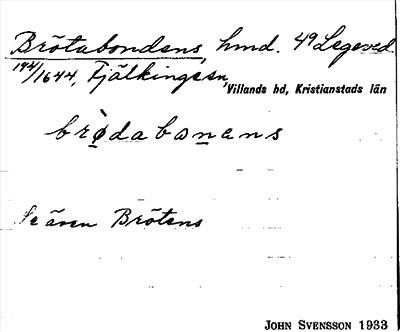 Brötabondens, hmd. 49 Legeved
194/1644, Fjälkinge sn,
Villands hd, Kristianstads län
brødabonans
Se även Brötens
JOHN SVENSSON 1933